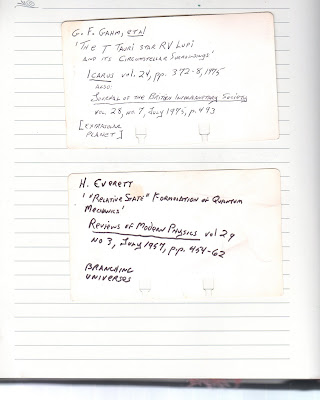 G. F. GAHM, ET AL
'THE T TAURI STAR RV LUPI
AND ITS CIRCUMSTELLAR SURROUNDINGS'
ICARUS vol. 24, pp. 372-8, 1975
ALSO:
JOURNAL OF THE BRITISH INTERPLANETARY SOCIETY
VOL. 28, NO. 7, July 1975, p. 493
[EXTRASOLAR
PLANET]
H. EVERETT
' "RELATIVE STATE" FORMULATION OF QUANTUM
MECHANICS'
REVIEWS OF MODERN PHYSICS vol 29
NO 3, July 1957, pp. 454-62
BRANCHING
UNIVERSES